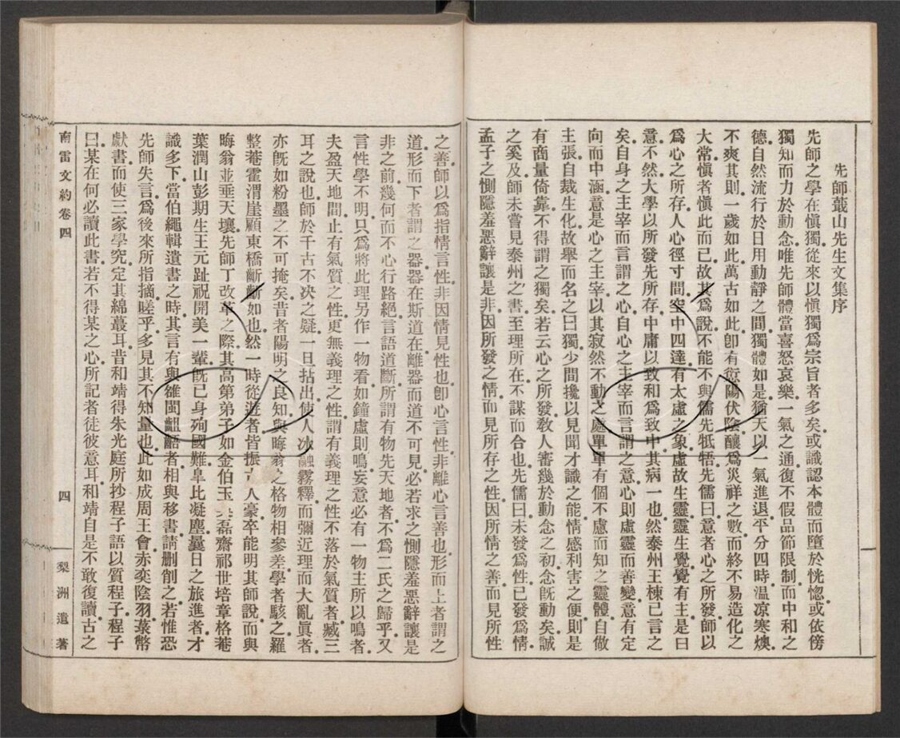 先師蕺山先生文集序
先師之學在愼獨從來以愼獨爲宗旨者多矣或識認本體而墮於恍惚或依傍
獨知而力於動念唯先師體當喜怒哀樂一氣之通復不假品節限制而中和之
德自然流行於日用動靜之間獨體如是猶天以一氣進退平分四時温凉寒燠
不爽其則一歲如此萬古如此卽有愆陽伏陰釀爲災祥之數而終不易造化之
大常愼者愼此而已故其爲說不能不與儒先牴牾先儒曰意者心之所發師以
爲心之所存人心徑寸間空中四達有太虛之象虛故生靈靈生覺覺有主是曰
意不然大學以所發先所存中庸以致和爲致中其病一也然泰州王棟已言之
矣自身之主宰而言謂之心自心之主宰而言謂之意心則虛靈而善變意有定
向而中涵意是心之主宰以其寂然不動之處單單有個不慮而知之靈體自做
主張自裁生化故擧而名之曰獨少間攙以見聞才識之能情感利害之便則是
有商量倚靠不得謂之獨矣若云心之所發敎人審幾於動念之初念旣動矣誠
之奚及師未嘗見泰州之書至理所在不謀而合也先儒曰未發爲性已發爲情
孟子之惻隱羞惡辭讓是非因所發之情而見所存之性因所情之善而見所性
之善師以爲指情言性非因情見性也卽心言性非離心言善也形而上者謂之
道形而下者謂之器器在斯道在離器而道不可見必若求之惻隱羞惡辭讓是
非之前幾何而不心行路絕言語道斷所謂有物先天地者不爲二氏之歸乎又
言性學不明只爲將此理另作一物看如鐘虛則鳴妄意必有一物主所以鳴者
夫盈天地間止有氣質之性更無義理之性謂有義理之性不落於氣質者臧三
耳之說也師於千古不决之疑一旦拈出使人冰融霧釋而彌近理而大亂眞者
亦旣如粉墨之不可掩矣昔者陽明之良知與晦翁之格物相參差學者駭之羅
整菴霍渭崖顧東橋斷斷如也然一時從遊者皆振人豪卒能明其師說而與
晦翁並垂天壤先師丁改革之際其高第弟子如金伯玉磊齋祁世培章格菴
葉潤山彭期生王元趾祝開美一輩旣已身殉國難皐比凝塵曩日之旅進者才
識多下當伯繩輯遺書之時其言有與雒閩齟齬者相與移書請删削之若惟恐
先師失言爲後來所指摘嗟乎多見其不知量也此如成周王會赤奕陰羽菉幣
獻書而使三家學究定其綿蕞耳昔和靖得朱光庭所抄程子語以質程子程子
曰某在何必讀此書若不得某之心所記者徒彼意耳和靖自是不敢復讀古之
南雷文約卷四
四
梨洲遺著